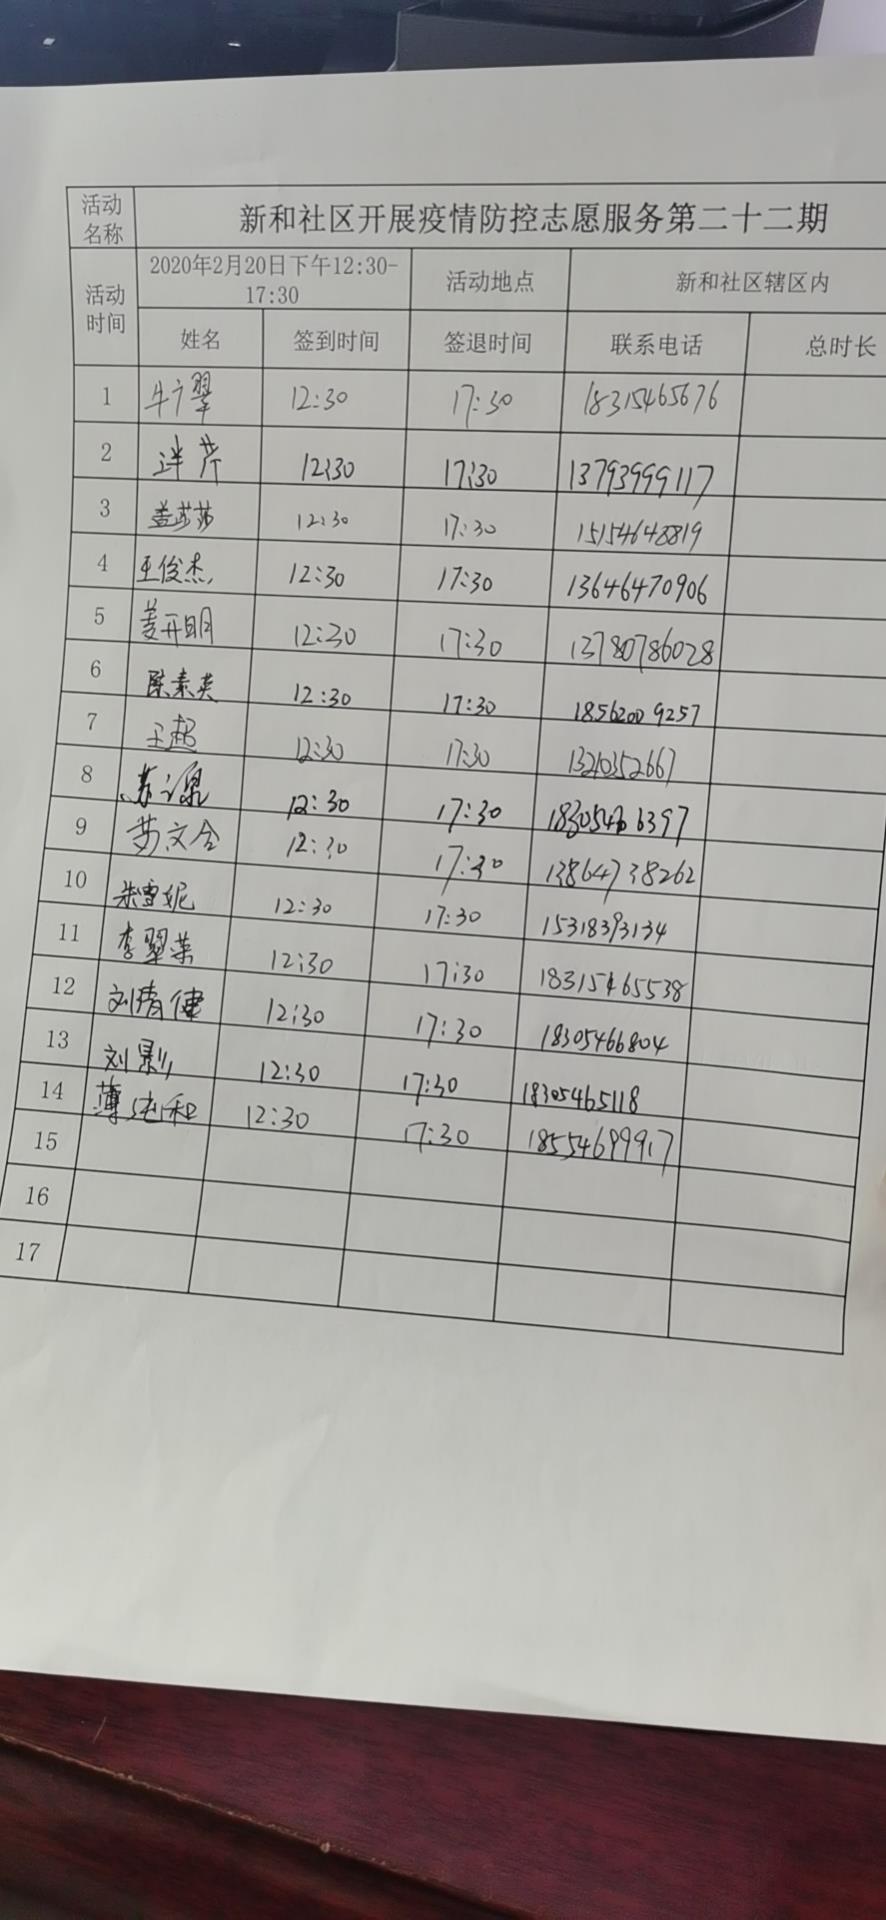 活动名称 新和社区开展疫情防控志愿服务第二十二期
活动时间 2020年2月20日下午12:30-17:30 活动地点 新和社区辖区内
姓名 签到时间 签退时间 联系电话 总时长
1 牛广翠 12:30 17:30 18315465676
2 洋芹 12:30 17:30 13793999117
3 盖莎莎 12:30 17:30 15154648819
4 王俊杰 12:30 17:30 13646470906
5 姜开明 12:30 17:30 13780786028
6 陈素英 12:30 17:30 18562009257
7 王超 12:30 17:30 1321352667
8 12:30 17:30
9 12:30 17:30 13864738262
10 朱雪妮 12:30 17:30 15318393134
11 李翠荣 12:30 17:30 18315465538
12 刘清健 12:30 17:30 18305466804
13 刘影 12:30 17:30 18305465118
14 薄纯和 12:30 17:30 18554699917
15
16
17